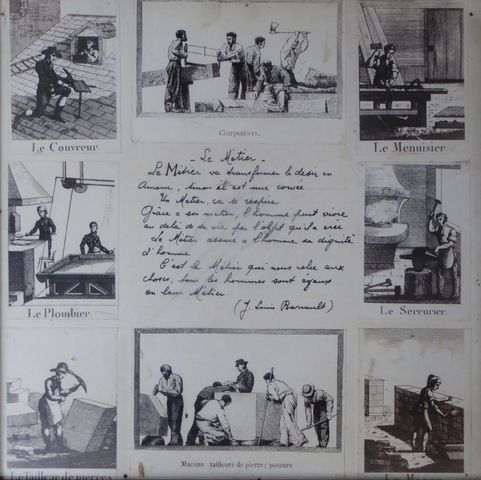 Le Couvreur.
Charpentiers.
Le Menuisier.
- Le Métier -
Le Métier va transformer le désir en
Amour, sinon il est une corvée
Un Métier, ça se respire
Grâce a son métier, l'homme peut vivre
au delà de sa vie par l'objet qu'il a crée
Le Métier assure a l'homme sa dignité
d'homme
C'est le Métier qui nous relie aux
choses, tous les hommes sont égaux
en leur Métier
(J. Louis Barrault)
Le Plombier.
Le Serrurier.
Le Tailleur de pierres
Maçons, tailleurs de pierre; poseurs.
Le Maçon